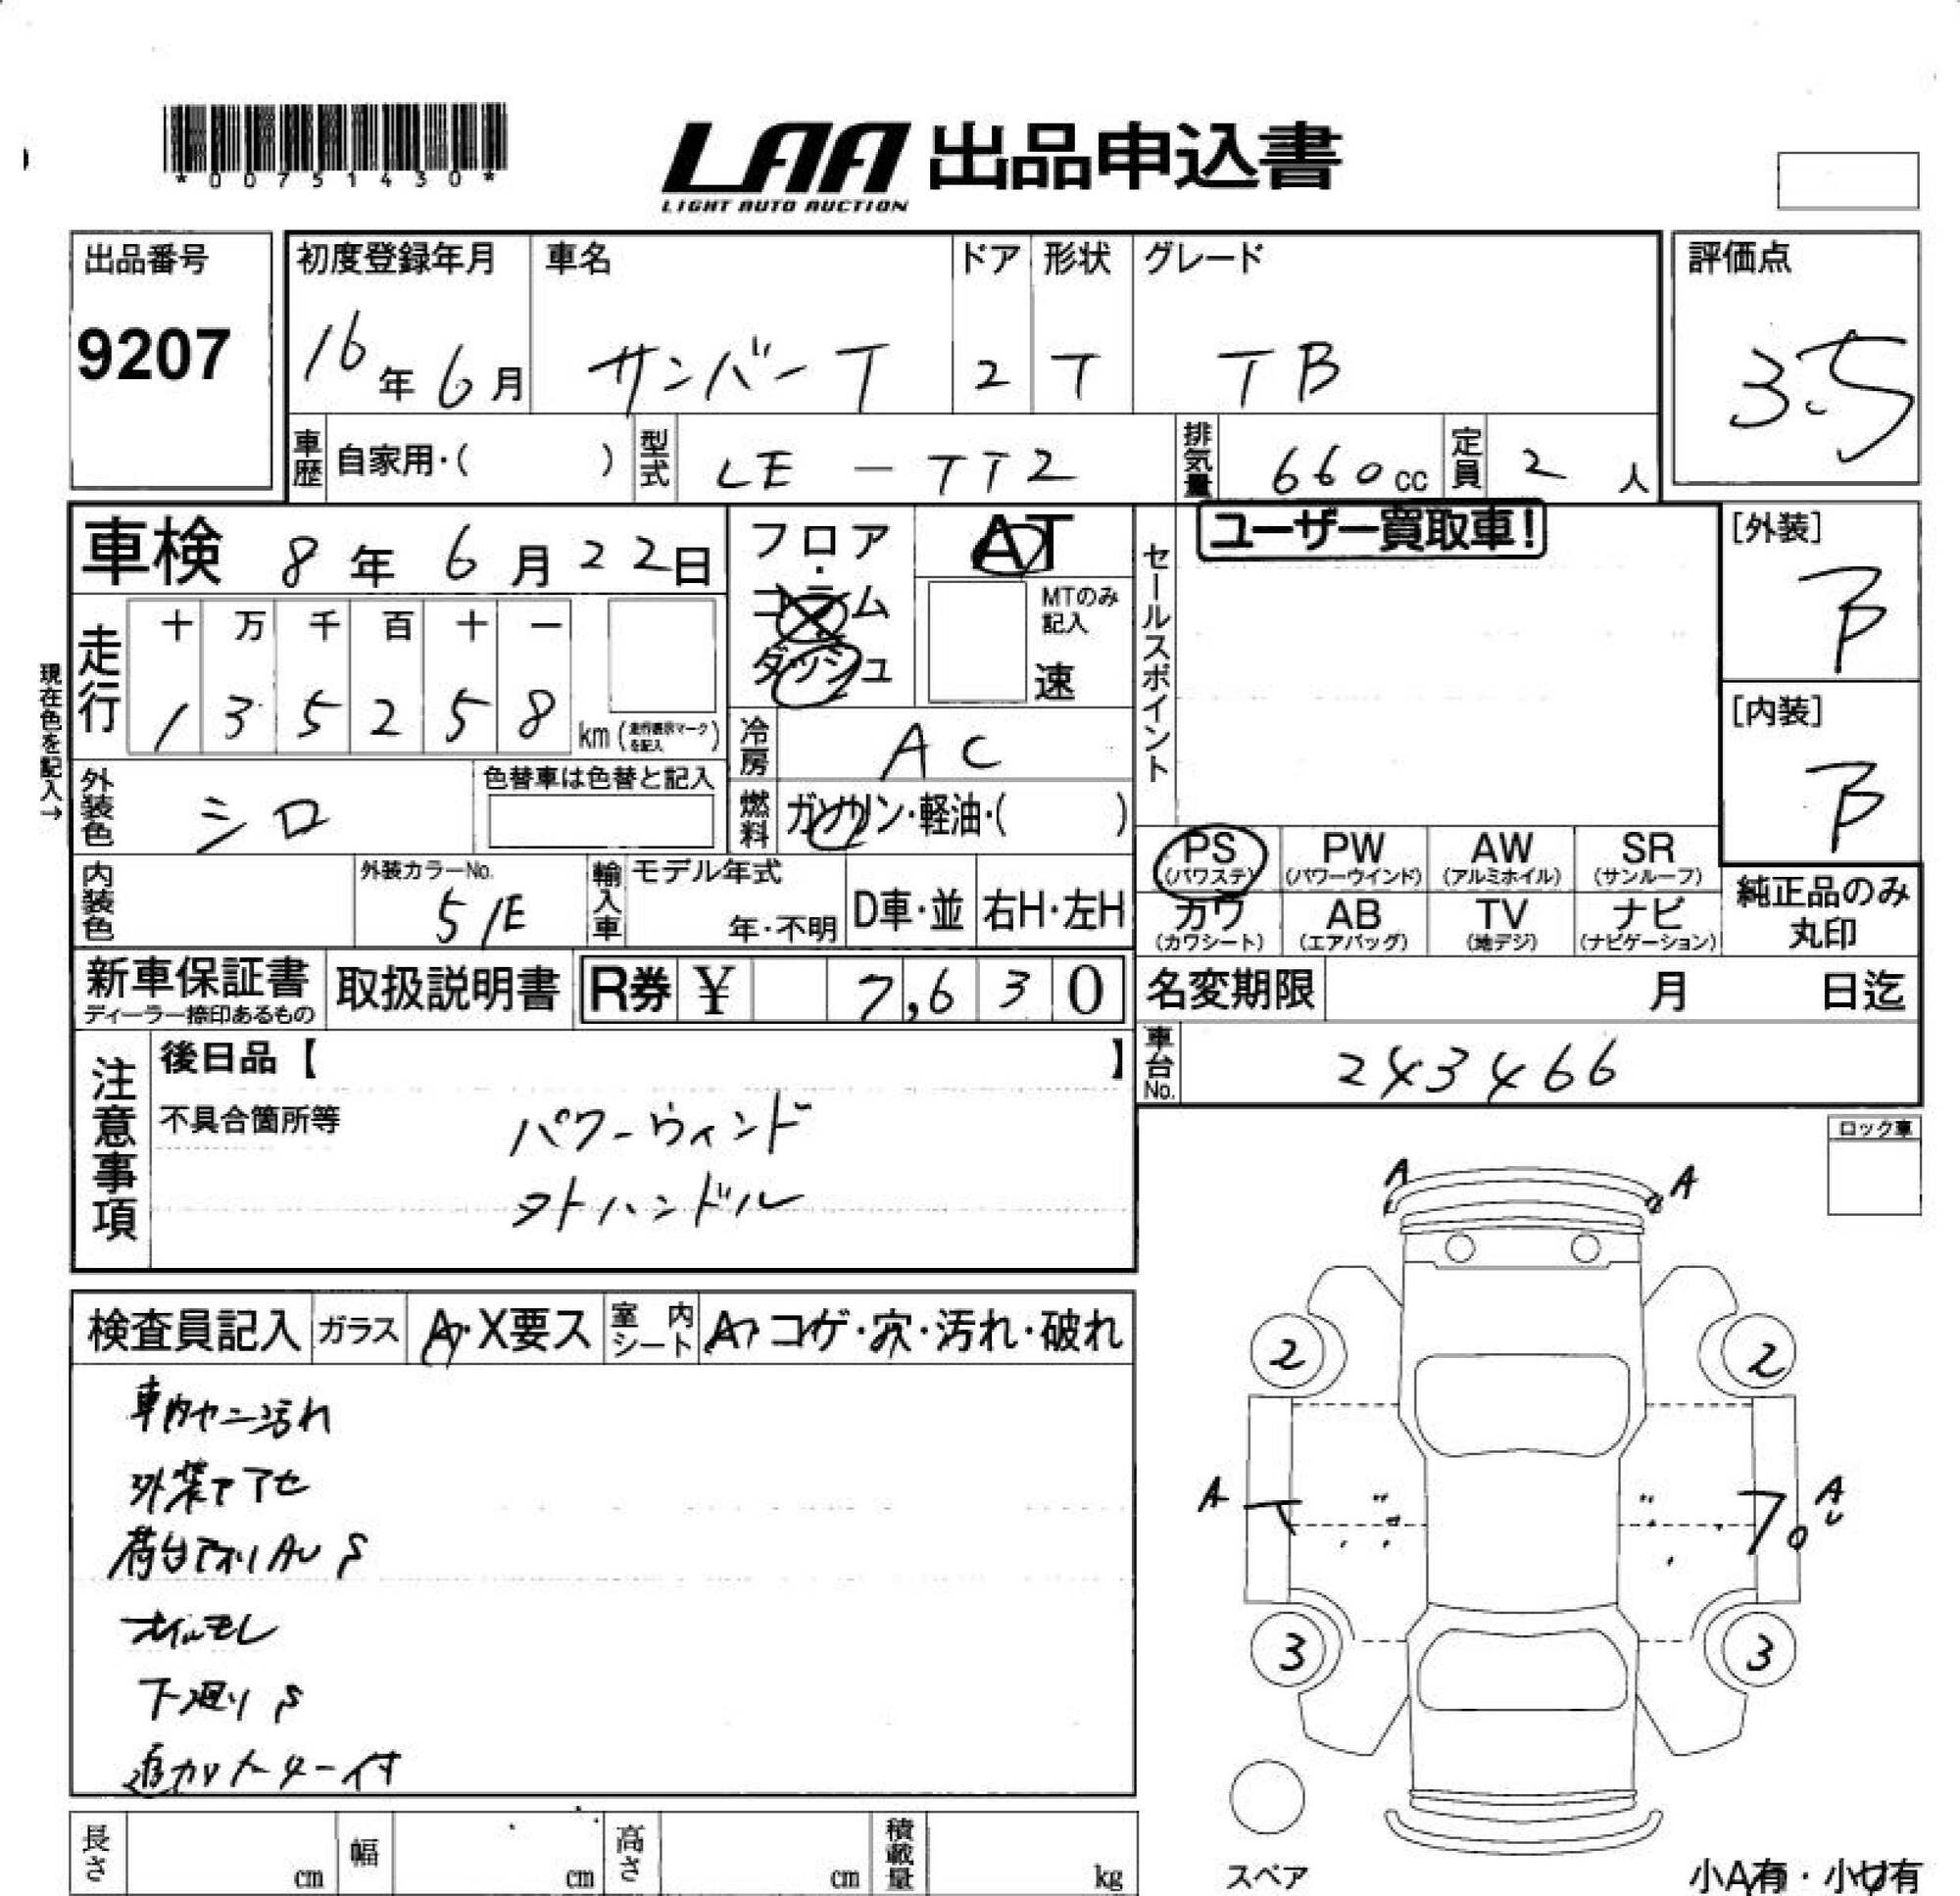 *00751430*
LAA 出品申込書
LIGHT AUTO AUCTION
出品番号 9207
初度登録年月 16年6月
車名 サンバーT
ドア 2
形状 T
グレード TB
評価点 3.5
車歴 自家用・( )
型式 LE-TT2
排気量 660cc
定員 2人
車検 8年6月22日
フロア・コラム ダッシュ
AT
MTのみ記入 速
セールスポイント
ユーザー買取車!
[外装] B
[内装] B
現在色を記入→
走行 十 万 千 百 十 一
1 3 5 2 5 8 km (走行表示マークを記入)
冷房 AC
外装色 シロ
色替車は色替と記入
燃料 ガソリン・軽油・( )
内装色
外装カラーNo. 51E
輸入車 モデル年式 年・不明 D車・並 右H・左H
PS (パワステ)
PW (パワーウインド)
AW (アルミホイル)
SR (サンルーフ)
カワ (カワシート)
AB (エアバッグ)
TV (地デジ)
ナビ (ナビゲーション)
純正品のみ丸印
新車保証書
ディーラー捺印あるもの
取扱説明書
R券 ¥ 7,630
名変期限 月 日迄
車台No. 243466
注意事項
後日品【 】
不具合箇所等
パワーウィンド
ソトハンドル
ロック車
検査員記入 ガラス A・X要ス 室内シート A・コゲ・穴・汚れ・破れ
外装
オイルモレ
下廻り S
A A
2 2
A A
U
3 3
スペア
小A有・小U有
長さ cm 幅 cm 高さ cm 積載量 kg